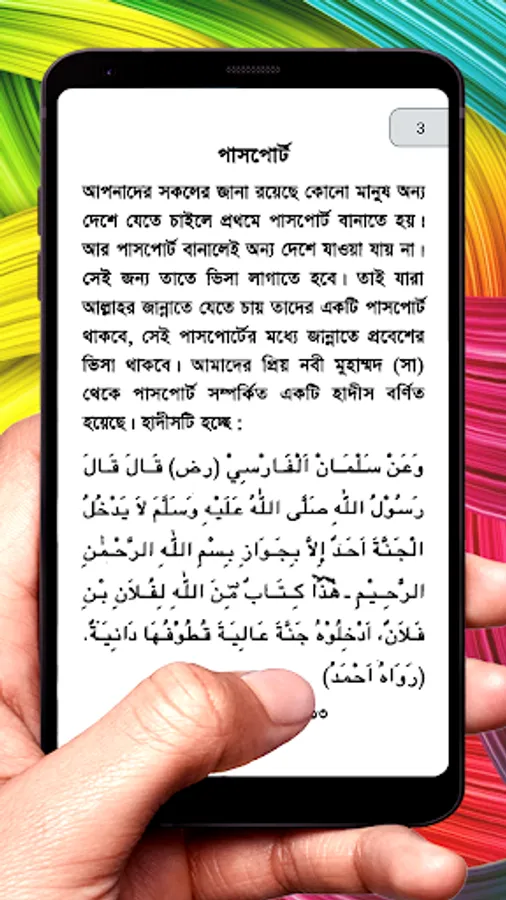 3
পাসপোর্ট
আপনাদের সকলের জানা রয়েছে কোনো মানুষ অন্য
দেশে যেতে চাইলে প্রথমে পাসপোর্ট বানাতে হয়।
আর পাসপোর্ট বানালেই অন্য দেশে যাওয়া যায় না।
সেই জন্য তাতে ভিসা লাগাতে হবে। তাই যারা
আল্লাহর জান্নাতে যেতে চায় তাদের একটি পাসপোর্ট
থাকবে, সেই পাসপোর্টের মধ্যে জান্নাতে প্রবেশের
ভিসা থাকবে। আমাদের প্রিয় নবী মুহাম্মদ (সা)
থেকে পাসপোর্ট সম্পর্কিত একটি হাদীস বর্ণিত
হয়েছে। হাদীসটি হচ্ছে :
وَعَنْ سَلْمَانْ الْفَارْسِيْ (رض) قَالَ قَالَ
رَسُوْلُ اللّٰهِ صَلَّى اللّٰهُ عَلَيْهِ وَسَلَّمَ لاَ يَدْخُلُ
الْجَنَّةَ اَحَدٌ اِلاَّ بِجَوَازِ بِسْمِ اللّٰهِ الرَّحْمٰنِ
الرَّحِيْمِ ـ هٰذَا كِتَابٌ مِّنَ اللّٰهِ لِفُلَانِ بْنِ
فَلَانٌ، اَدْخِلُوْهُ جَنَّةً عَالِيَةً قُطُوْفُهَا دَانِيَةٌ.
(رَوَاهُ اَحْمَدُ)